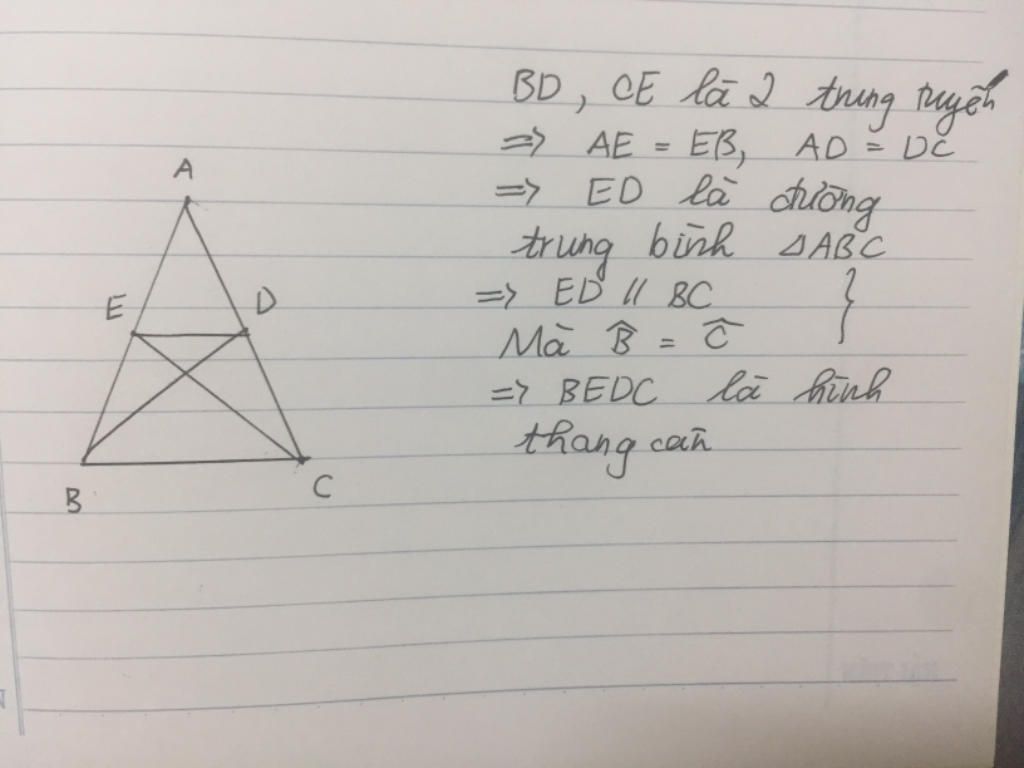 BD, CE là 2 trung tuyến
=> AE = EB, AD = DC
=> ED là đường
trung bình ΔABC
=> ED // BC }
Mà B̂ = Ĉ
=> BEDC là hình
thang cân
A
E D
B C